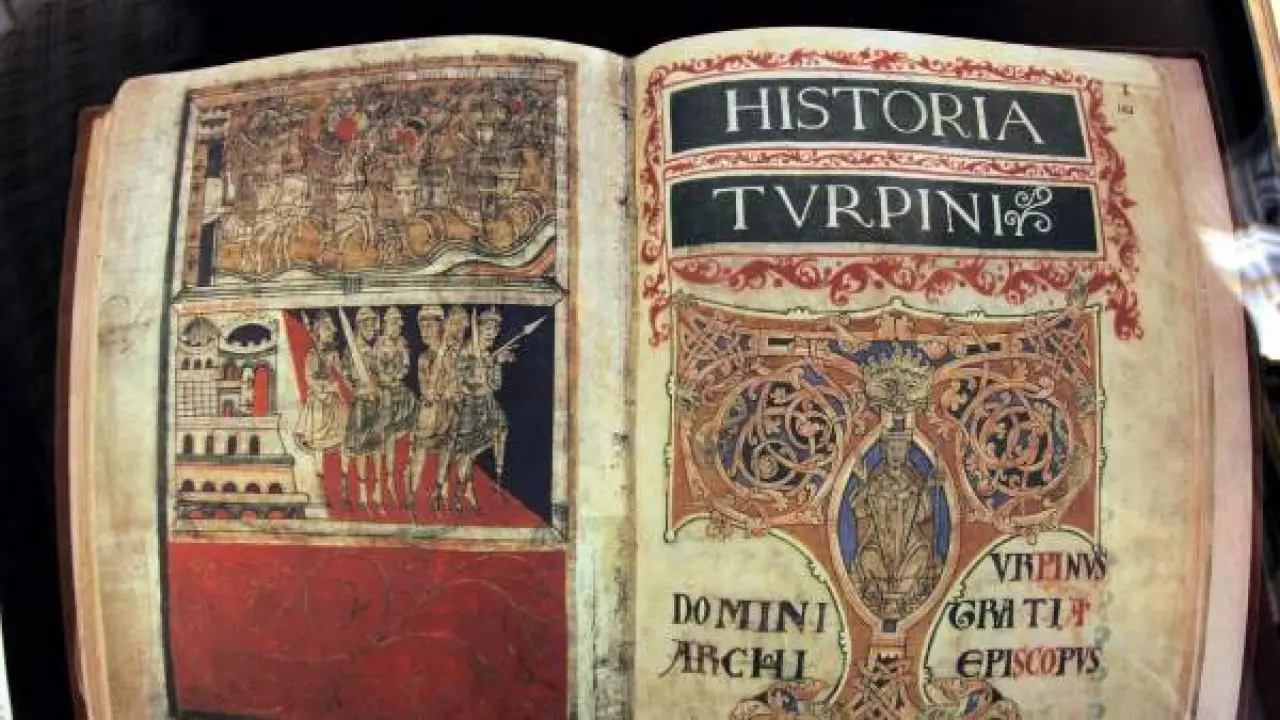 HISTORIA
TVRPINI
VRPINVS
DOMINI GRATIA
ARCHI EPISCOPVS